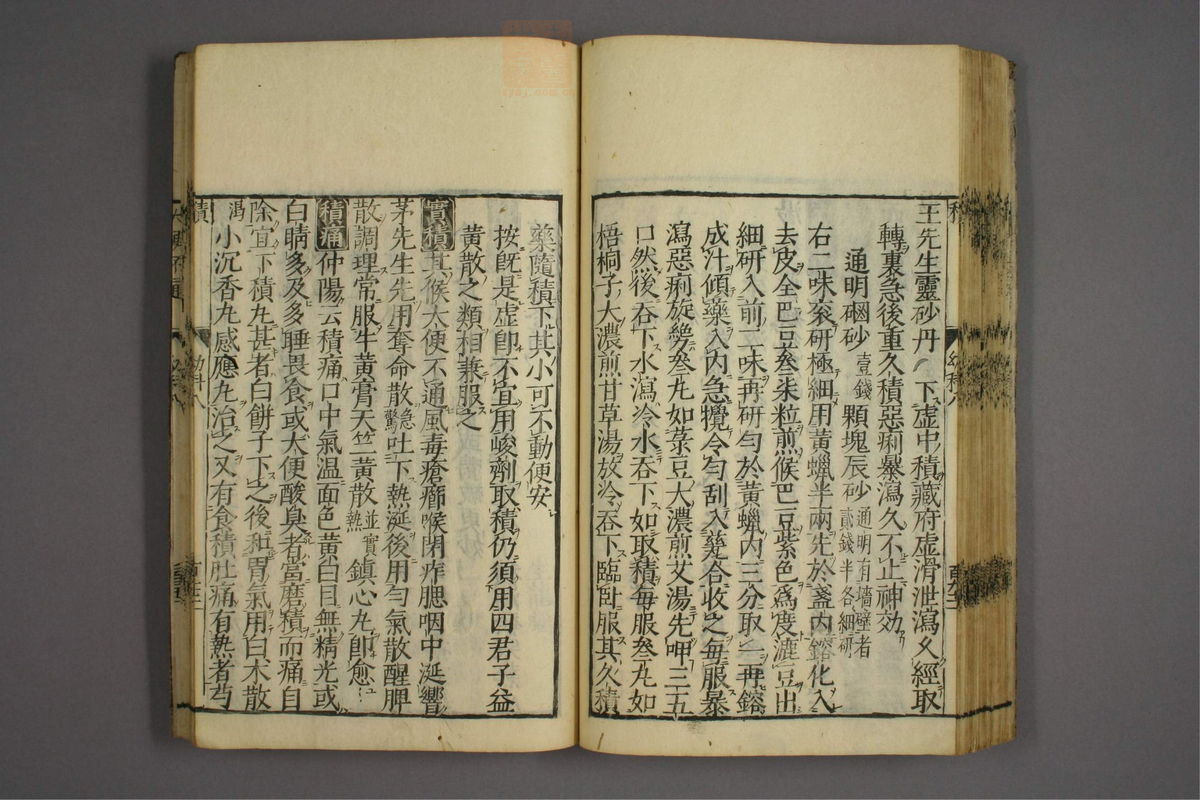 王先生靈砂丹 下虛中積藏府虛滑泄瀉久經取
轉裏急後重久積惡痢暴瀉久不止神効
通明硇砂壹錢 顆塊辰砂通明有墻壁者貳錢半各細研
右二味衮研極細用黃蠟半兩先於盞內鎔化入
去皮全巴豆叁柒粒煎候巴豆紫色爲度漉豆出
細研入前二味再研勻於黃蠟內三分取一再鎔
成汁傾藥入內急攪令勻刮入甆合收之每服暴
瀉惡痢旋丸叁丸如菉豆大濃煎艾湯先呷三五
口然後吞下水瀉冷水吞下如取積每服叁丸如
梧桐子大濃煎甘草湯放冷吞下臨臥服其久積
藥隨積下其小可不動便安
按旣是虛卽不宜用峻劑取積仍須用四君子益
黃散之類相兼服之
實積其候大便不通風毒瘡癤喉閉痄腮咽中涎響
茅先生先用奪命散急驚吐下熱涎後用勻氣散醒脾
散調理常服牛黃膏天竺黃散並實熱鎮心丸卽愈
積痛仲陽云積痛口中氣温面色黃白目無精光或
白睛多及多睡畏食或大便酸臭者當磨積而痛自
除宜下積丸甚者白餅子下之後和胃氣用白术散
小沉香丸感應丸治之又有食積肚痛有熱者芍